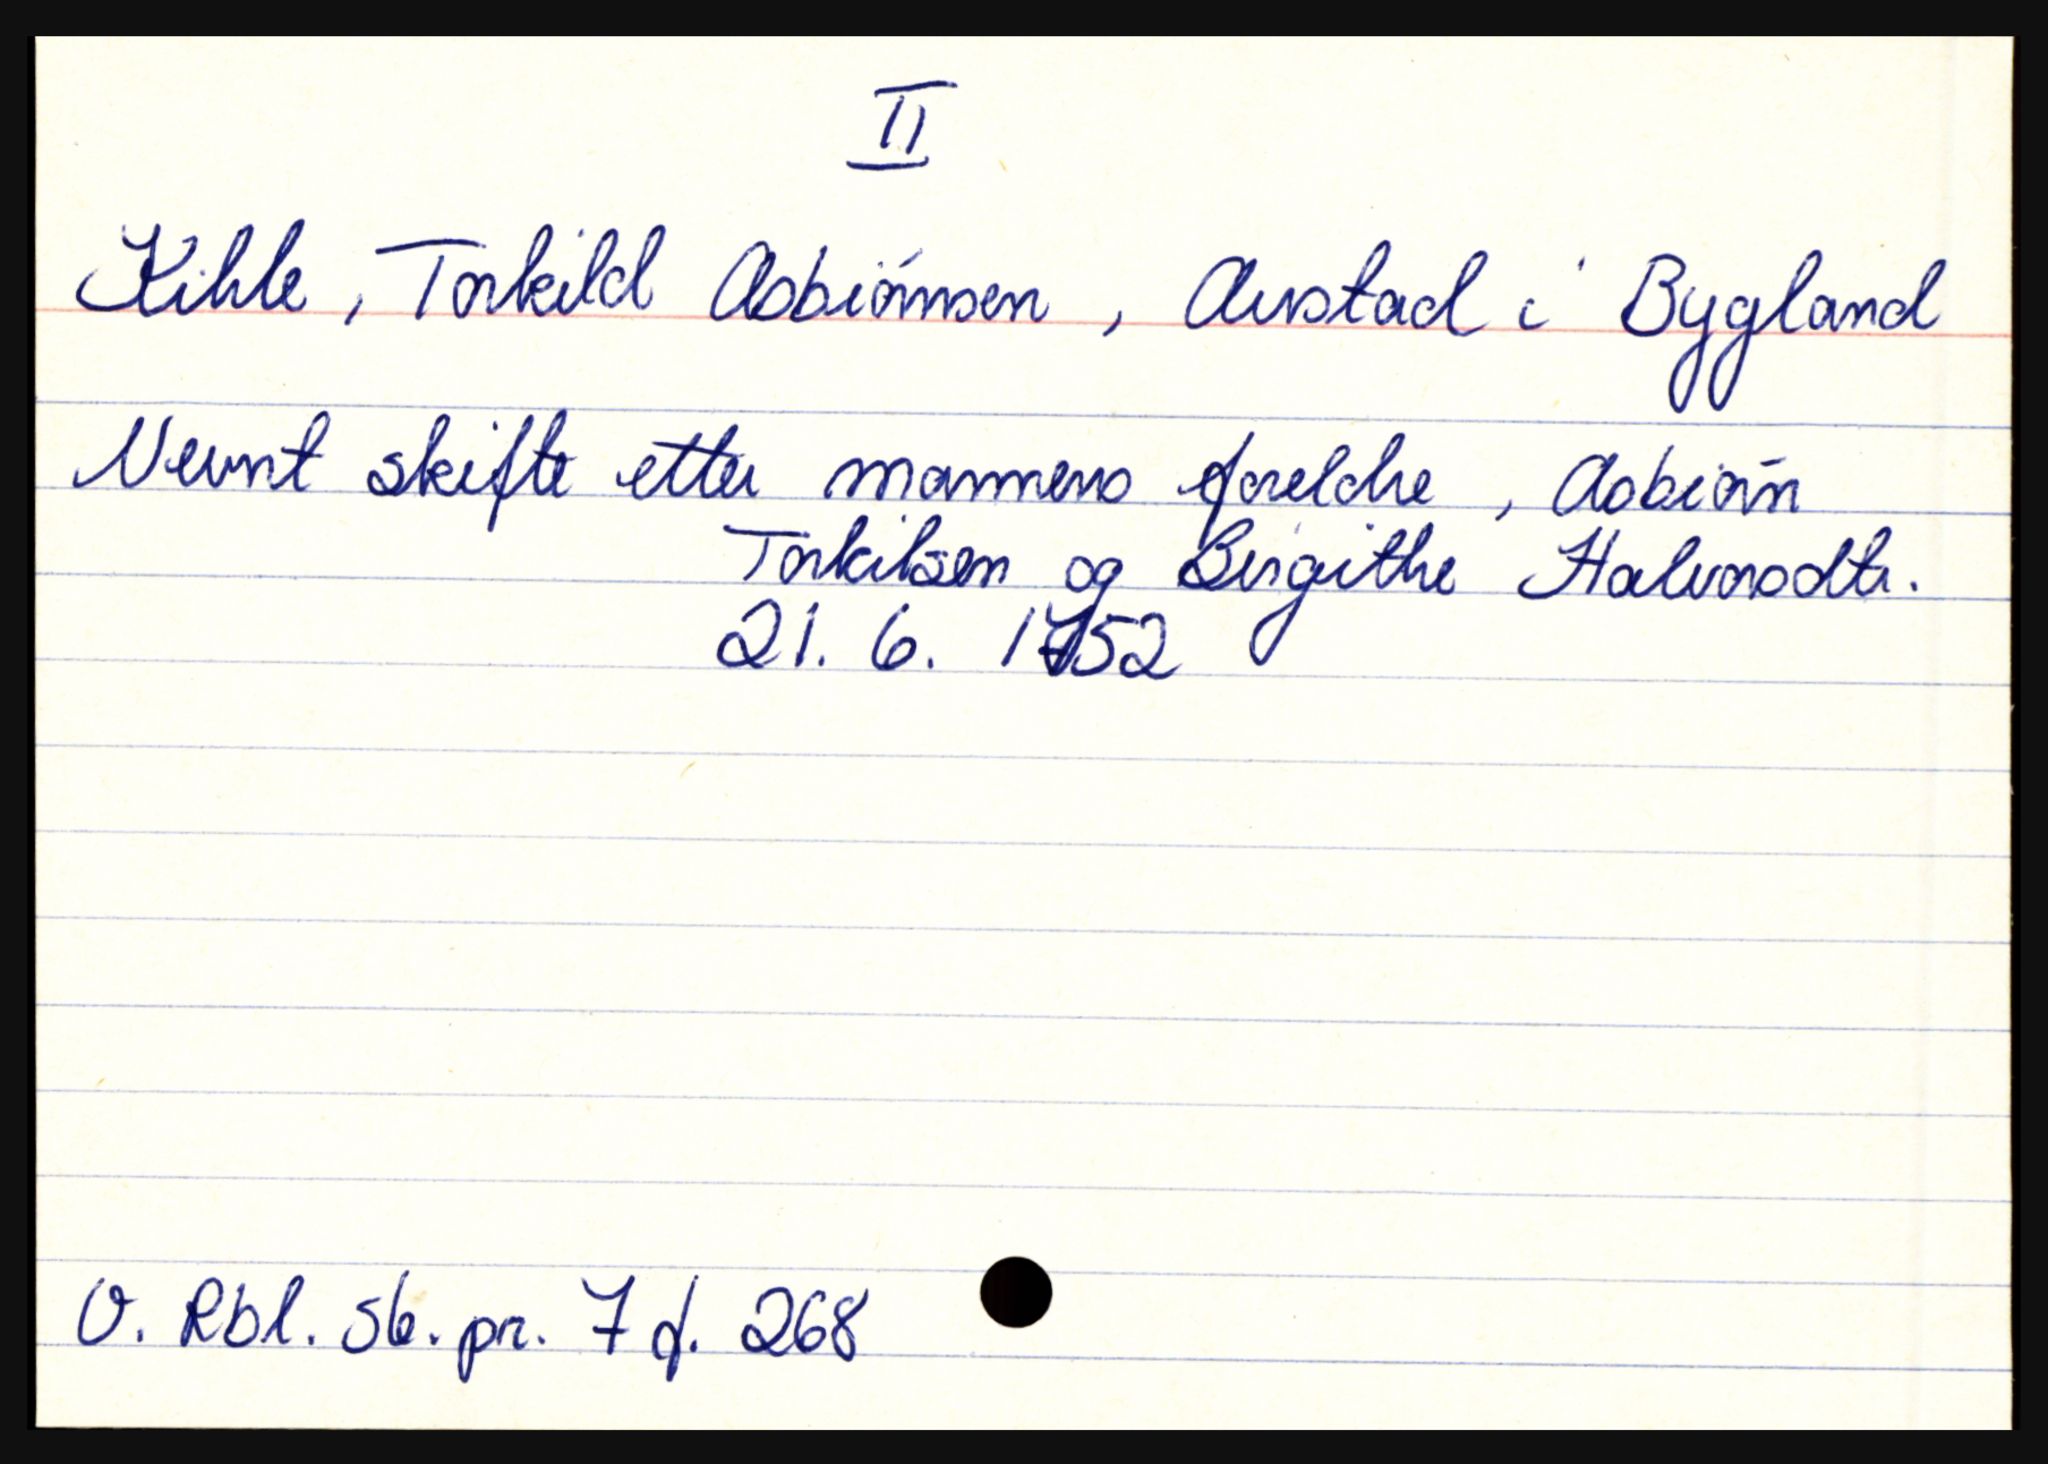 II
Kihle, Torkild Asbiørnsen, Austad i Bygland
Nevnt skifte etter mannens foreldre, Asbiørn
Torkilsen og Birgithe Halvorsdtr.
21. 6. 1752
V. Rbl. sk. pr. 7 f. 268